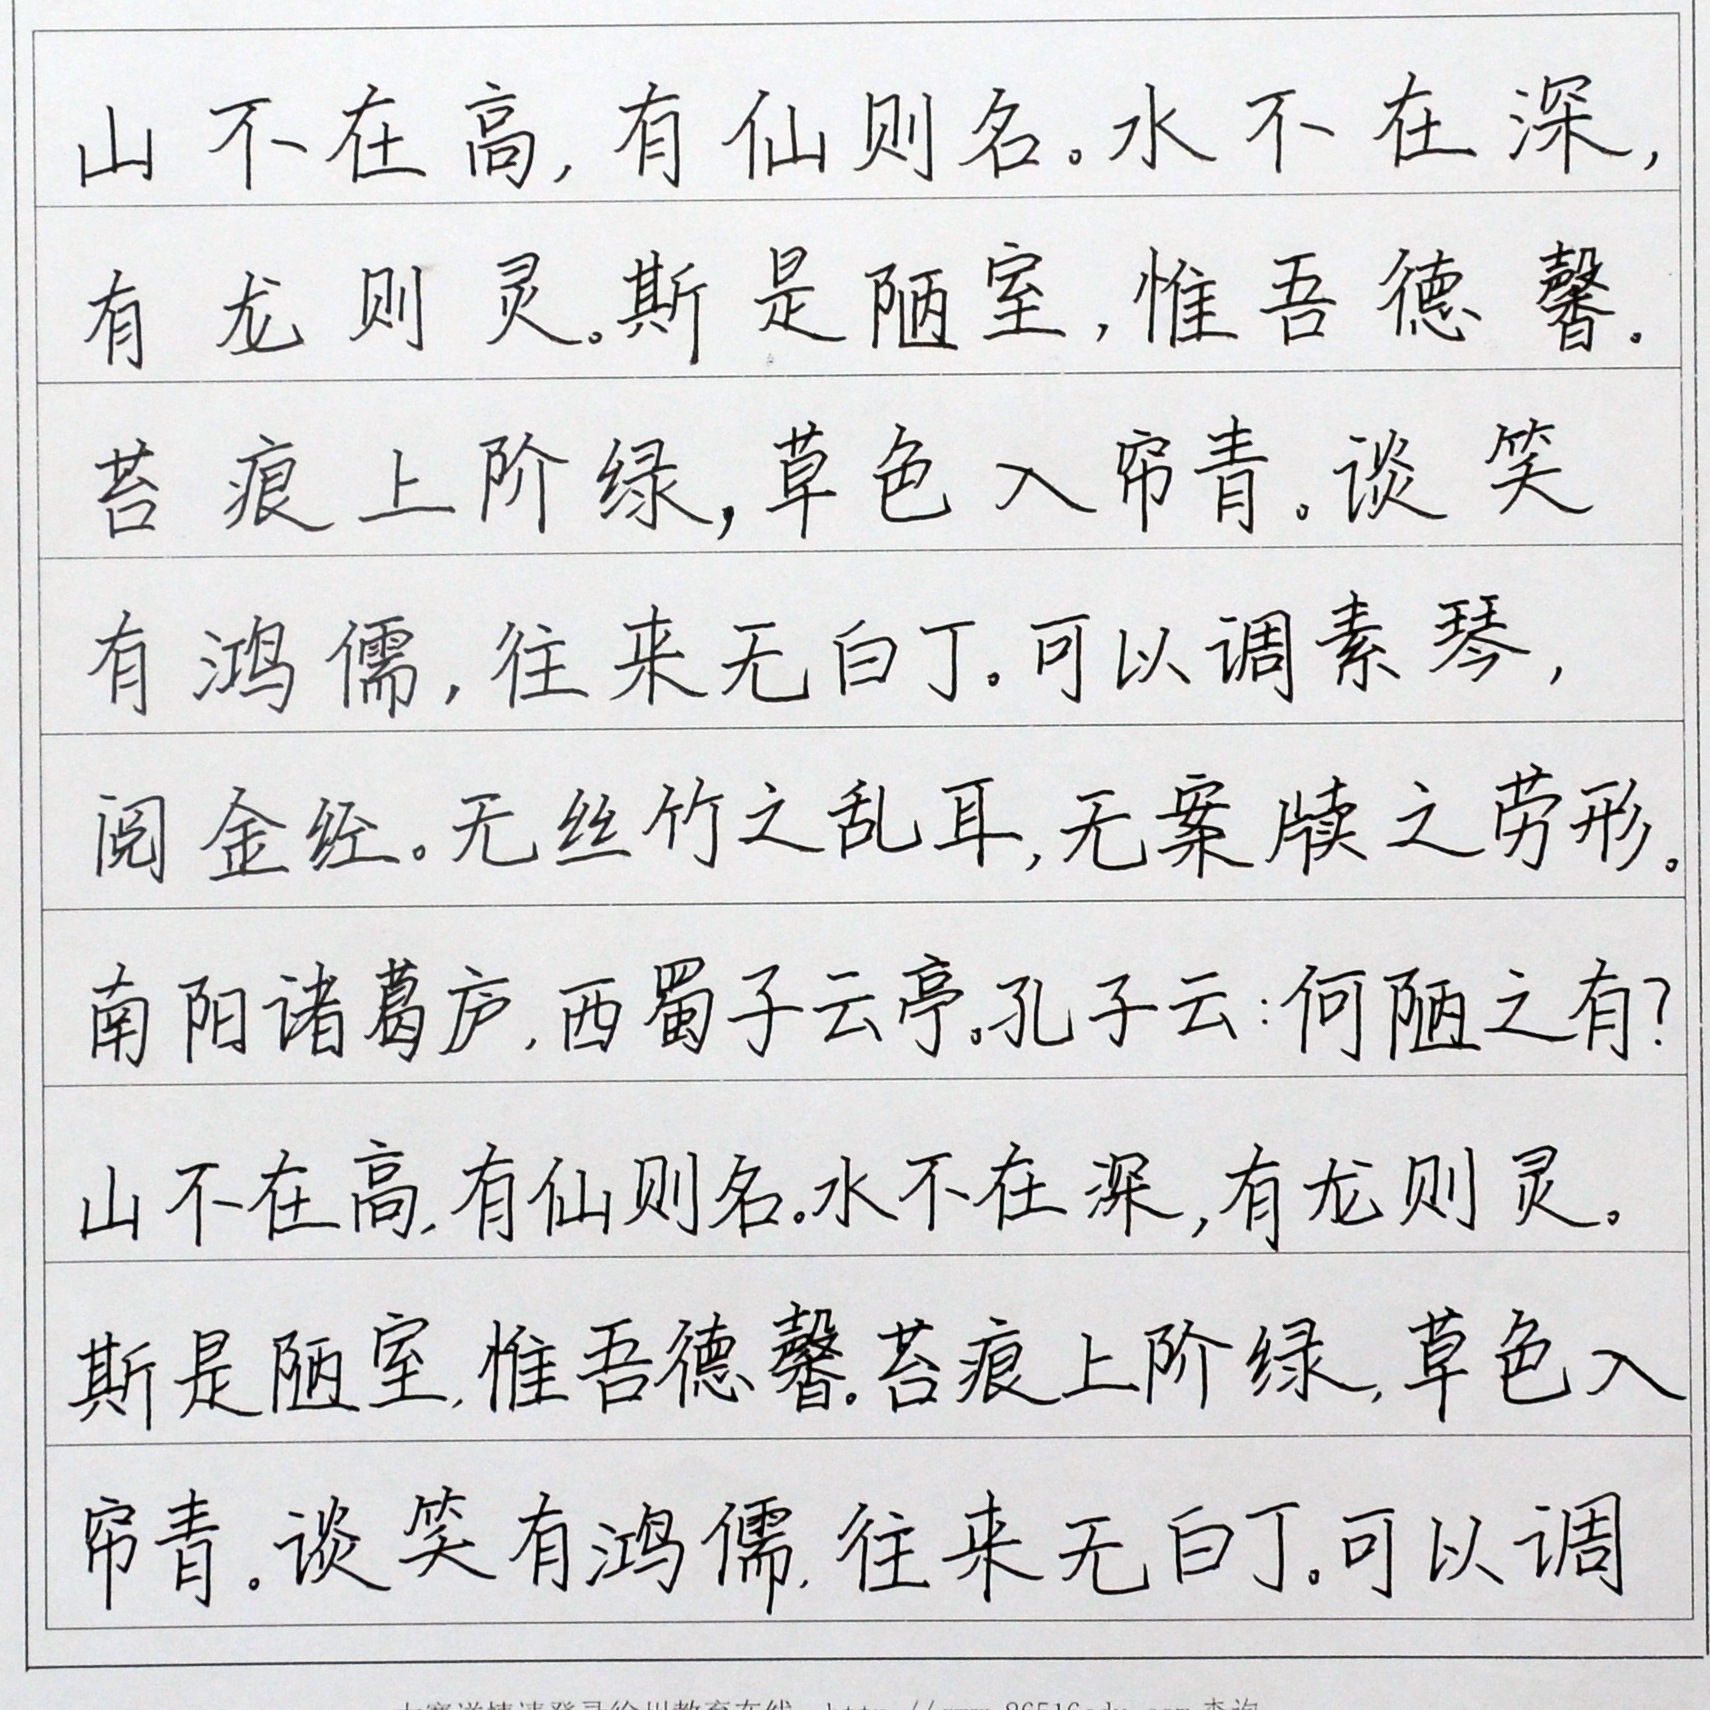 山不在高,有仙则名。水不在深,
有龙则灵。斯是陋室,惟吾德馨。
苔痕上阶绿,草色入帘青。谈笑
有鸿儒,往来无白丁。可以调素琴,
阅金经。无丝竹之乱耳,无案牍之劳形。
南阳诸葛庐,西蜀子云亭。孔子云:何陋之有?
山不在高,有仙则名。水不在深,有龙则灵。
斯是陋室,惟吾德馨。苔痕上阶绿,草色入
帘青。谈笑有鸿儒,往来无白丁。可以调